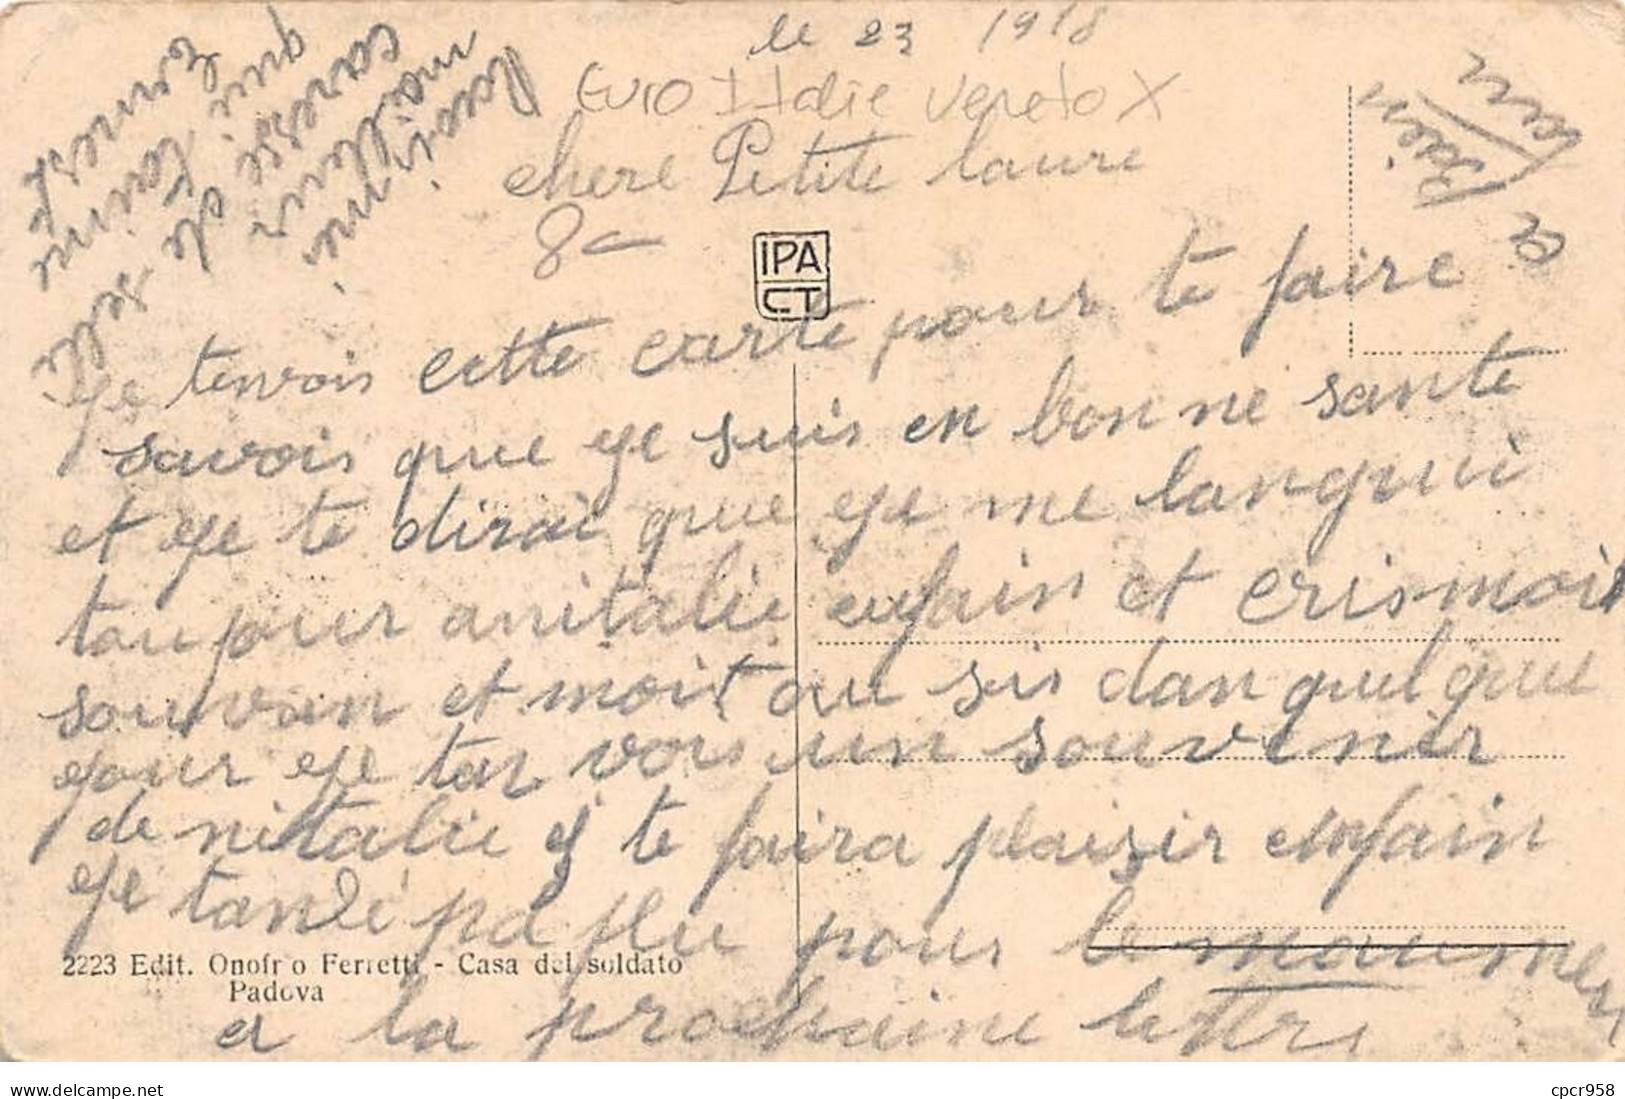 le 23 1918
Euro Italie Veneto X
chere Petite laure
8-
IPA
CT
ye tenvois cette carte pour te faire
savois que ye suis en bon ne sante
et ye te dirai que ye me langui
toupour anitalie enfain et crismoit
souvan et moit ou sis dan quelque
your ye tan vois un souvenir
de nitalie s te faira plaisir enfain
ye tandi pa plu pour le moumen
a la prochaine lettre
Reçoi mi
mailleur
caresse de selli
qui t'aime
Ernest
Bien
2223 Edit. Onofrio Ferretti - Casa del soldato
Padova
cpcr958